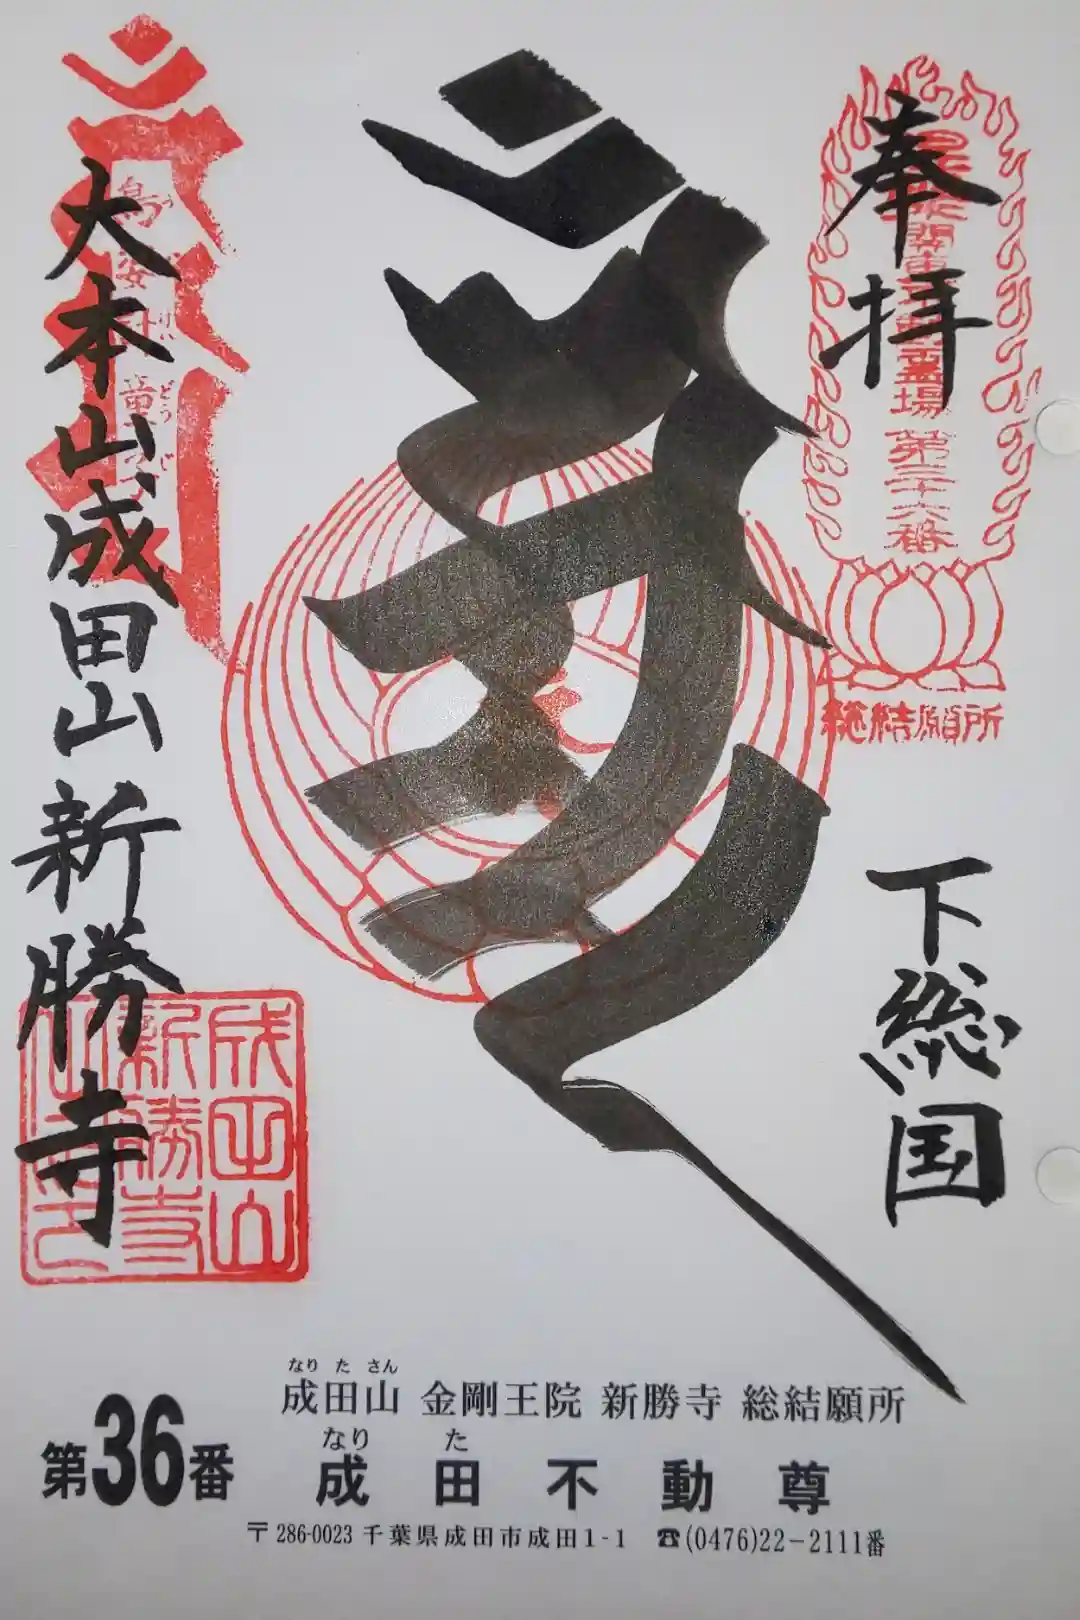 奉拝
第三十六番
総結願所
下総国
大本山成田山新勝寺
成田山
新勝寺
なり た さん
成田山 金剛王院 新勝寺 総結願所
第36番
なり た
成田不動尊
〒286-0023 千葉県成田市成田1-1 ☎(0476)22-2111番